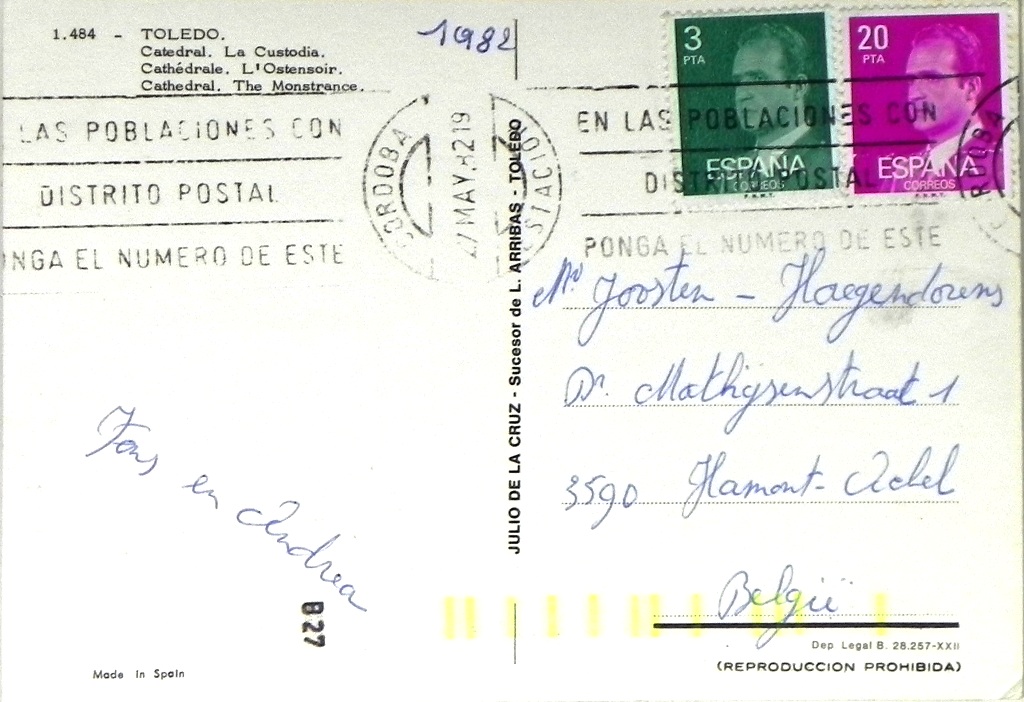 1.484 - TOLEDO.
Catedral. La Custodia.
Cathédrale. L'Ostensoir.
Cathedral. The Monstrance.
1982
3
PTA
ESPAÑA
CORREOS
20
PTA
ESPAÑA
CORREOS
LAS POBLACIONES CON
DISTRITO POSTAL
NGA EL NUMERO DE ESTE
CORDOBA
27 MAY.8219
ESTACION
EN LAS POBLACIONES CON
DISTRITO POSTAL
PONGA EL NUMERO DE ESTE
JULIO DE LA CRUZ - Sucesor de L. ARRIBAS - TOLEDO
Joosten - Haegendorens
Dr. Mathijsenstraat 1
3590 Hamont-Achel
België
Fons en Andrea
B27
Made in Spain
Dep Legal B. 28.257-XXII
(REPRODUCCION PROHIBIDA)